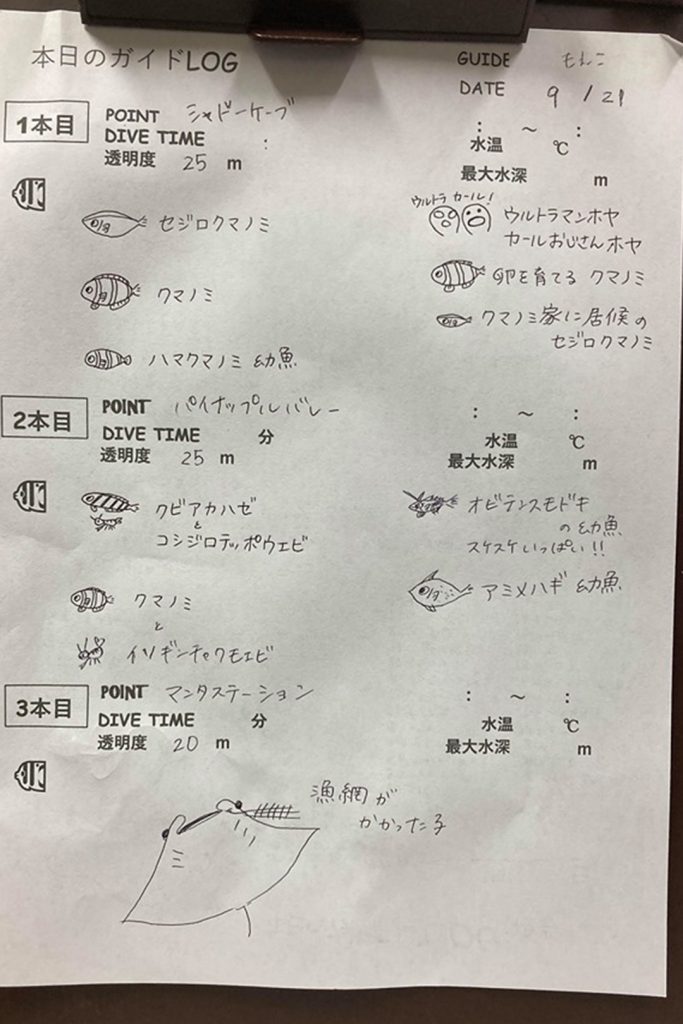 本日のガイドLOG
GUIDE もえこ
DATE 9 / 21
1本目
POINT シャドーケーブ
DIVE TIME :
: ~ :
透明度 25 m
水温 ℃
最大水深 m
セジロクマノミ
クマノミ
ハマクマノミ 幼魚
ウルトラ カール!
ウルトラマンホヤ
カールおじさんホヤ
卵を育てる クマノミ
クマノミ家に居候の
セジロクマノミ
2本目
POINT パイナップルバレー
DIVE TIME 分
: ~ :
透明度 25 m
水温 ℃
最大水深 m
クビアカハゼ
と
コシジロテッポウエビ
クマノミ
と
イソギンチャクモエビ
オビテンスモドキ
の幼魚
スケスケいっぱい!!
アミメハギ 幼魚
3本目
POINT マンタステーション
DIVE TIME 分
: ~ :
透明度 20 m
水温 ℃
最大水深 m
漁網が
かかった子